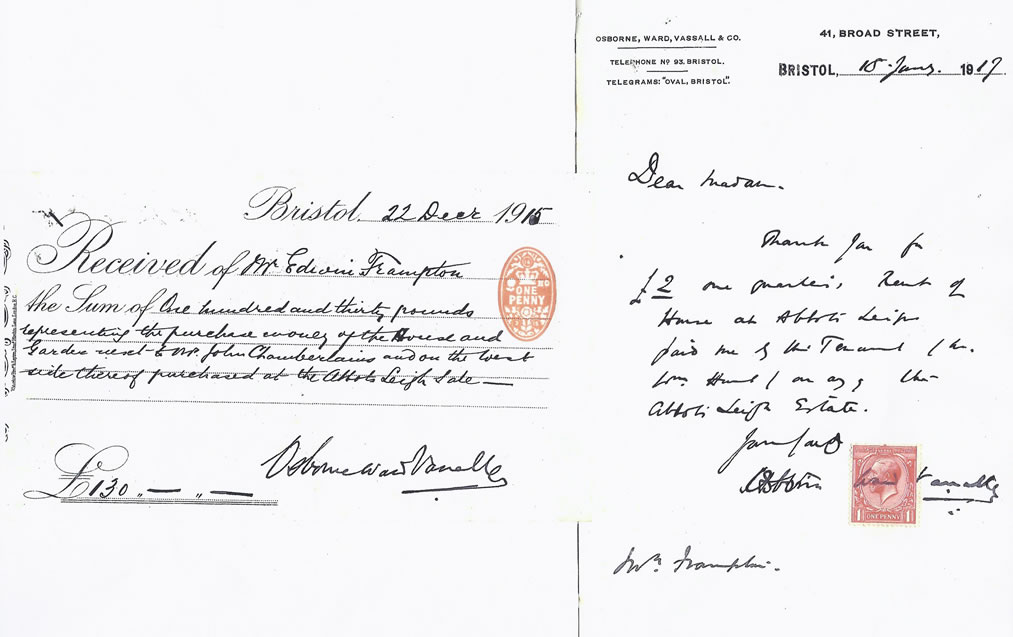 Bristol, 22 Decr 1915
Received of Mr. Edwin Frampton
the Sum of One hundred and thirty pounds
representing the purchase money of the House and
Garden next to Mr. John Chamberlains and on the West
side thereof purchased at the Abbots Leigh Sale —
£130 " — " —
Osborne Ward Vassall & Co
ONE
PENNY
OSBORNE, WARD, VASSALL & CO.
TELEPHONE Nº 93. BRISTOL.
TELEGRAMS: "OVAL, BRISTOL".
41, BROAD STREET,
BRISTOL, 15 Jany. 1917
Dear Madam.
Thank you for
£2 one quarter's Rent of
House at Abbots Leigh
paid me by the Tenant
Wm Hunt on a/c of the
Abbots Leigh Estate.
Yours faithy
Osborne Ward Vassall & Co
1 ONE PENNY 1
Mrs. Frampton.